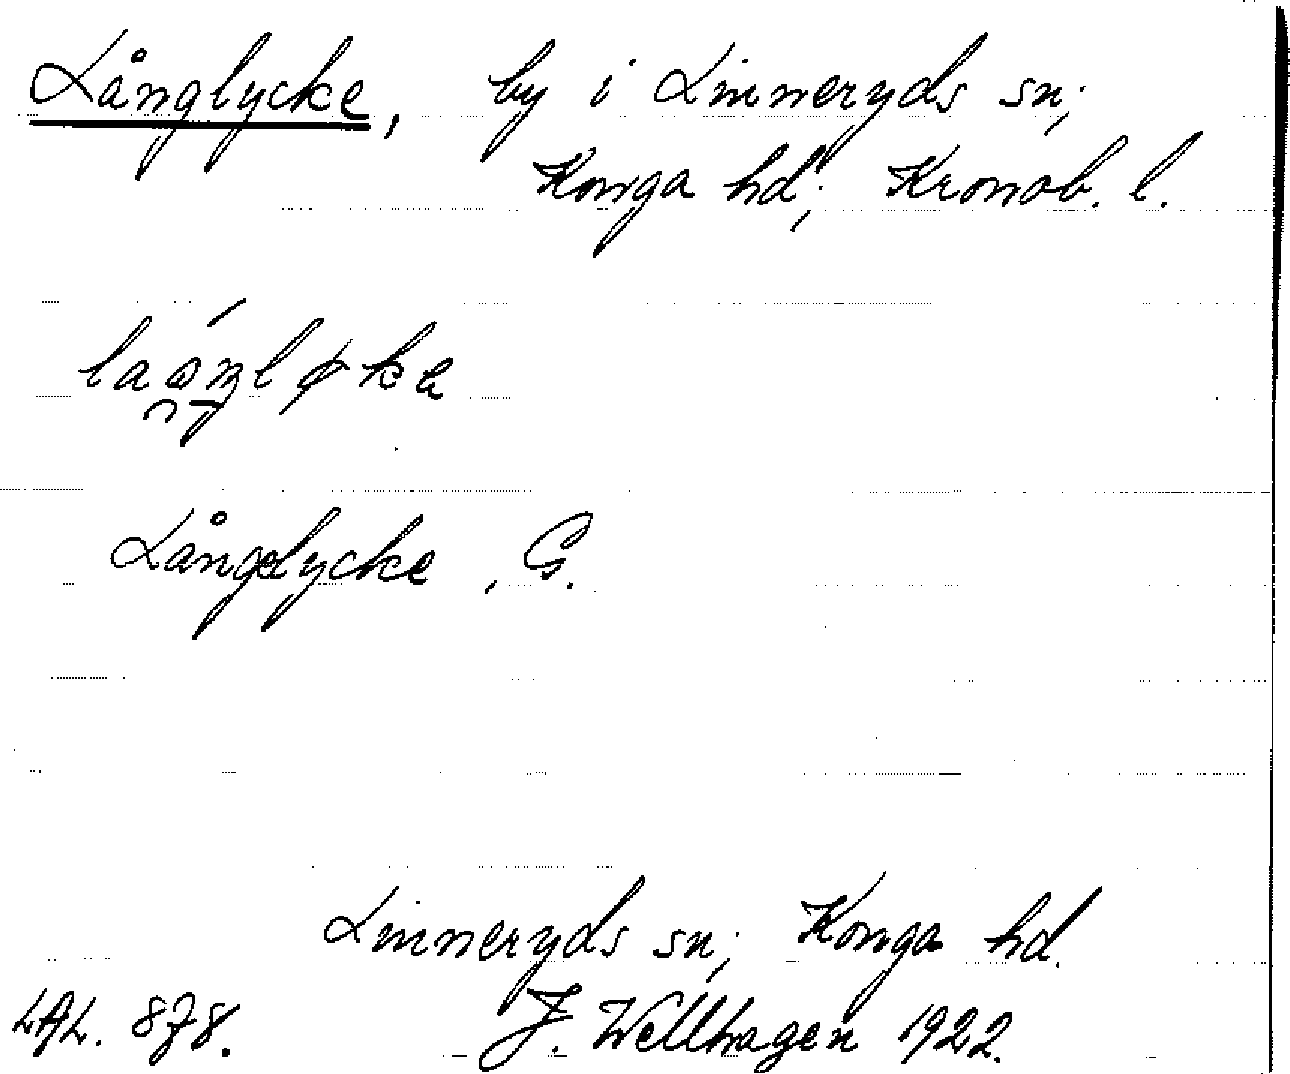 Långlycke, by i Linneryds sn;
Konga hd; Kronob. l.
Långelycke, G.
Linneryds sn; Konga hd.
LAL. 878. J. Wellhagen 1922.